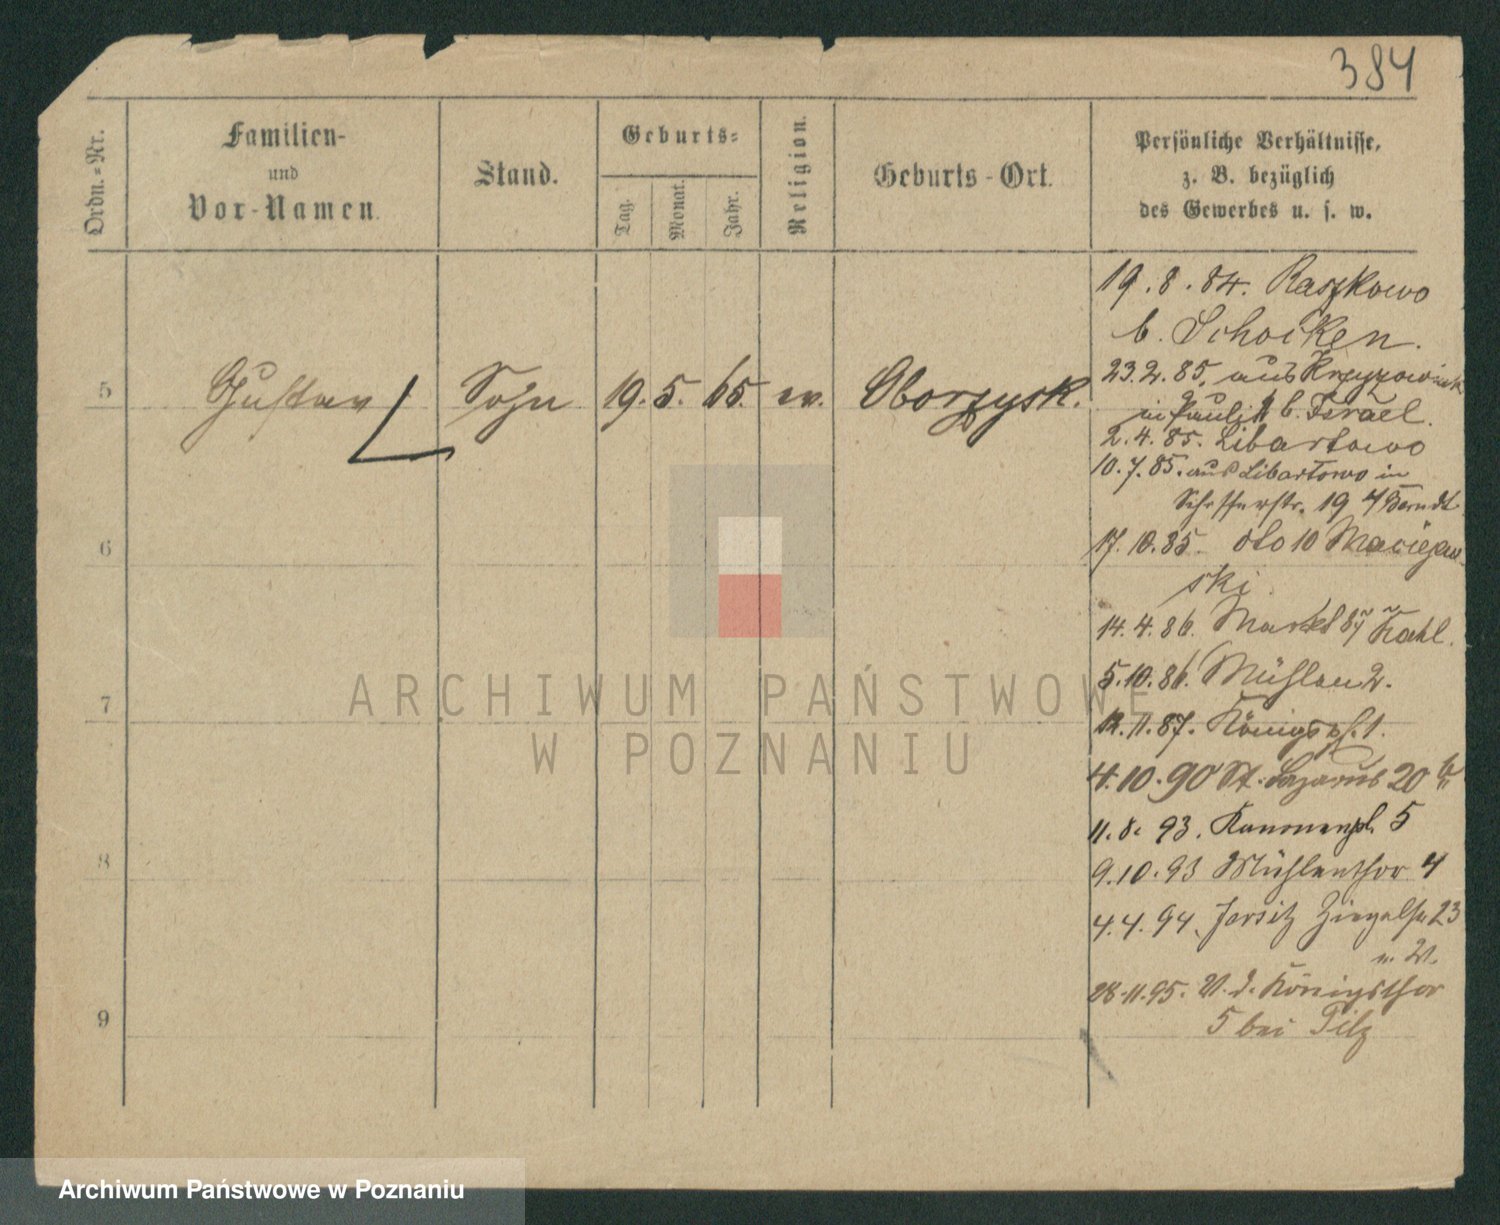 384
Ordn.=Nr.
Familien-
und
Vor-Namen.
Stand.
Geburts=
Tag.
Monat.
Jahr.
Religion.
Geburts-Ort.
Persönliche Verhältnisse,
z. B. bezüglich
des Gewerbes u. s. w.
5
Gustav
Sohn
19.
5.
65.
ev.
Oborzysk.
19.8.84. Raszkowo
b. Schocken.
23.2.85. aus
in b. Israel.
2.4.85. Libartowo
10.7.85. aus Libartowo in
19 4 Berndt
6
17.10.85. dto 10 Maciejew-
ski.
14.4.86. Markt 87 Kahl.
5.10.86. Mühlen 2.
7
12.11.87. Königspl. 1.
4.10.90 St. Lazarus 20
11.8.93. Kanonenpl. 5
8
9.10.93 Mühlenthor 4
4.4.94. Jersitz Ziegelstr 23
28.11.95. V. d. Königsthor
9
5 bei Pilz
ARCHIWUM PAŃSTWOWE
W POZNANIU
Archiwum Państwowe w Poznaniu